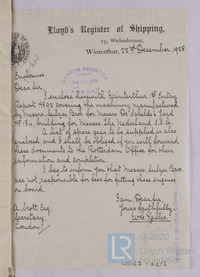 Lloyd's Register of Shipping,
Winterthur, 22nd December, 1925.
Enclosures
Dear Sir,
I enclose herewith Winterthur Entry
Report covering the machinery manufactured
by Messrs. Sulzer Bros for Messrs. De Schelde Yard
No. building for Messrs.
A list of spare gear to be supplied is also
enclosed and I shall be obliged if you will forward
these documents to the Rotterdam Office for their
information and completion.
I beg to inform you that Messrs. Sulzer Bros
are not responsible for fees for fitting these engines
on board.
I am, Dear Sir,
Yours faithfully,
A. Scott Esq.
Secretary,
London.
© 2020
Lloyd's Register